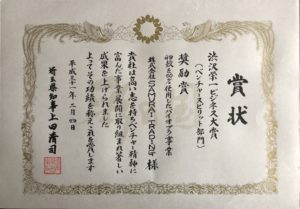 賞状
渋沢栄一ビジネス大賞
(ベンチャースピリット部門)
奨励賞
卵殻を60%使用したバイオプラ事業
株式会社SAMURAI TRADING 様
貴社は高い志を持ちベンチャー精神に
富んだ事業展開に取り組まれ著しい
成果を上げられました
よってその功績を称えこれを賞します
平成三十一年二月四日
埼玉県知事 上田清司